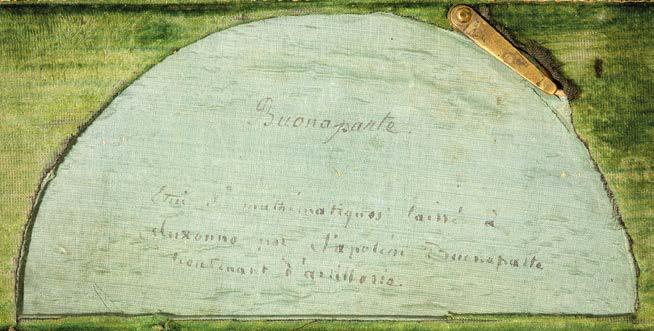 Buonaparte.
Etui de mathématiques laissé à
Auxonne par Napoléon Buonaparte
lieutenant d'artillerie.